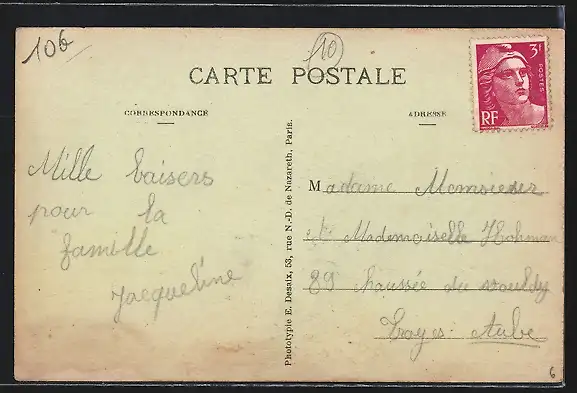 106
10
CARTE POSTALE
3F
POSTES
RF
CORRESPONDANCE
ADRESSE
Mille baisers
pour la
famille
Jacqueline
Phototypie E. Desaix, 53, rue N.-D. de Nazareth, Paris.
Madame
et Mademoiselle Hohman
89 chaussée du vouldy
Troyes. Aube
6